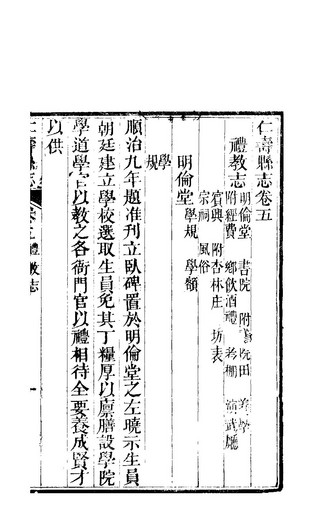 仁壽縣志卷五
禮教志
明倫堂 書院 附書院田 義學
附經費 鄉飲酒禮 考棚 演武廳
賓興 附杏林庄 坊表
宗祠 風俗
明倫堂 學規 學額
學規
順治九年題准刊立臥碑置於明倫堂之左曉示生員
朝廷建立學校選取生員免其丁糧厚以廩膳設學院
學道學官以教之各衙門官以禮相待全要養成賢才
以供
仁壽縣志 卷五 禮教志 一